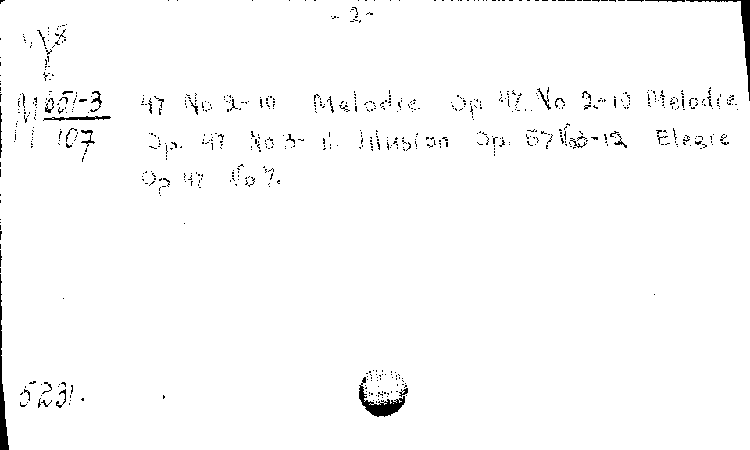 - 2 -
M 651-3
107
47 No 2-10 Melodie Op 47. No 2-10 Melodie
Op. 47 No 3- 11. Illusion Op. 57 No3-12 Elegie
Op 47 No 7.
5231.